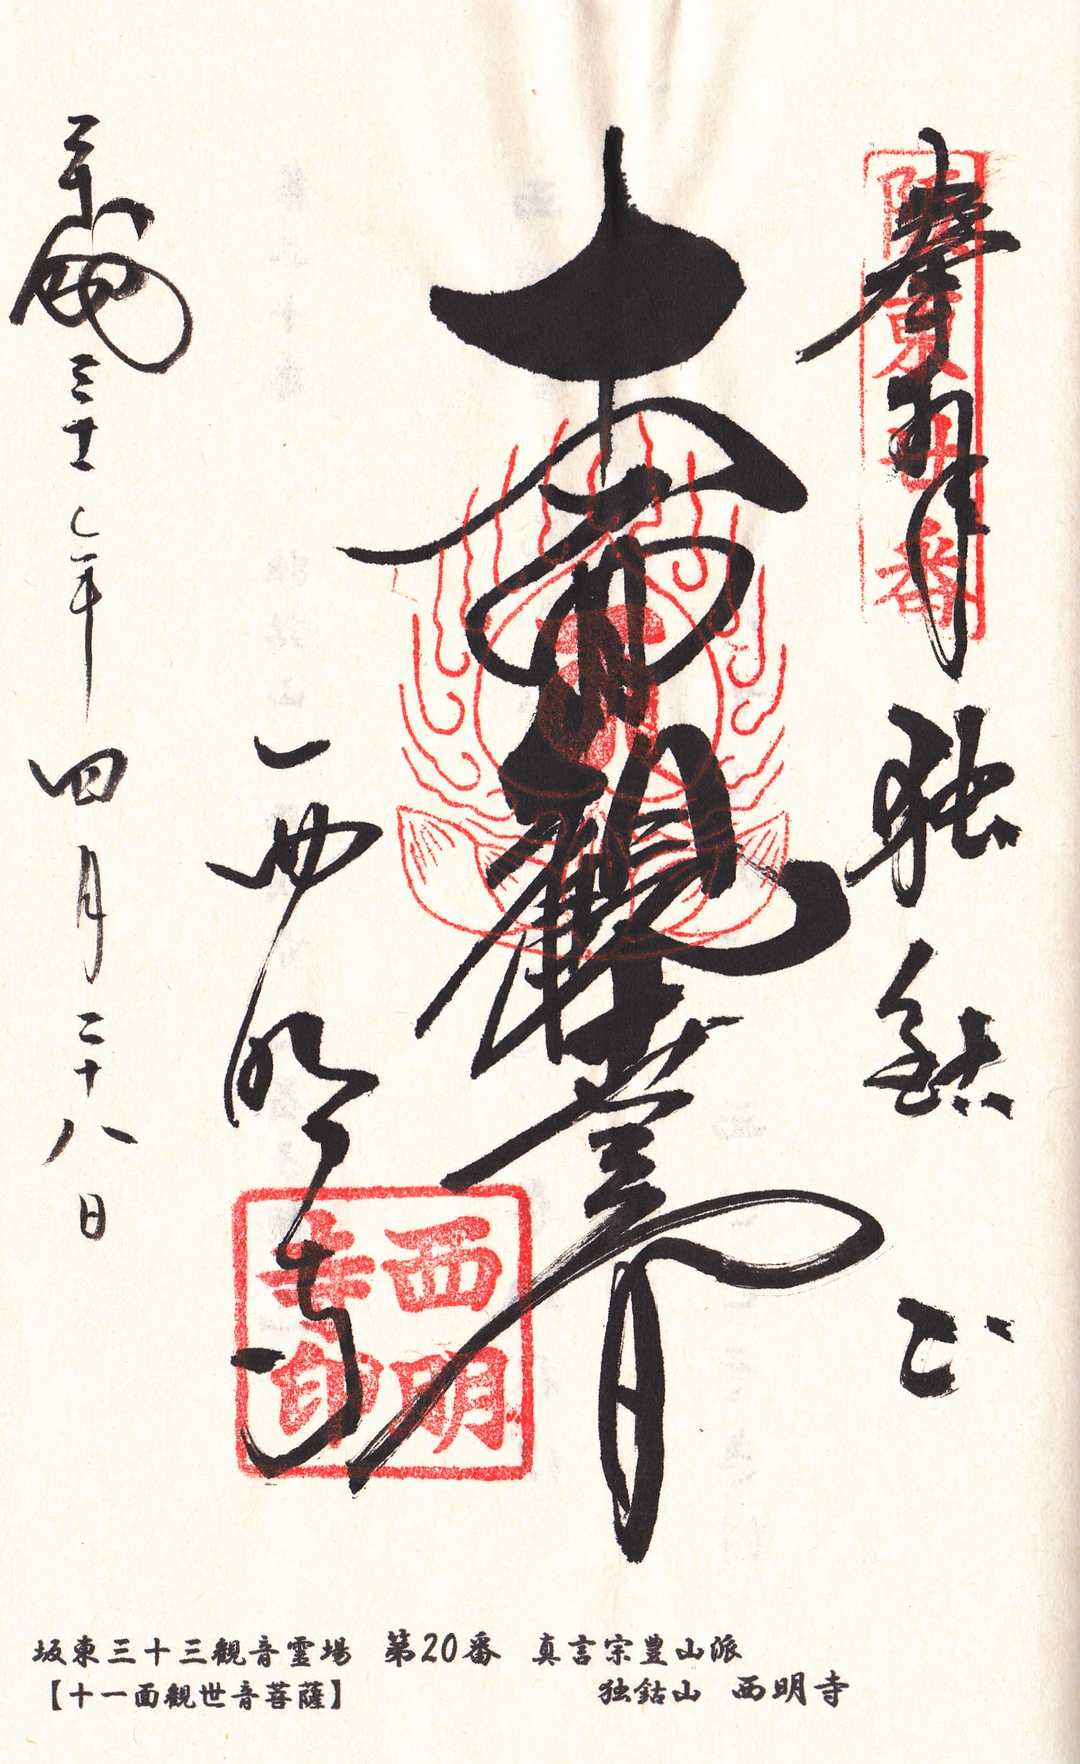 奉拝 独鈷山
阪東廿番
十一面観世音
西明寺
西明寺印
平成三十一年四月二十八日
坂東三十三観音霊場 第20番 真言宗豊山派
【十一面観世音菩薩】 独鈷山 西明寺